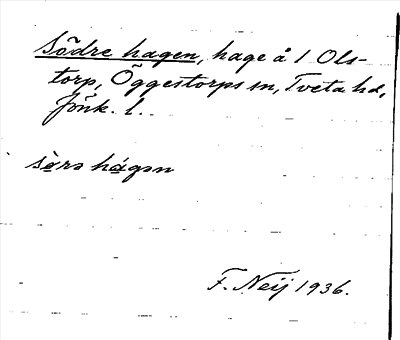 Södre hagen, hage å 1 Ols-
torp, Öggestorps sn, Tveta hd,
Jönk. l.
sörə hágən
F. Neij 1936.